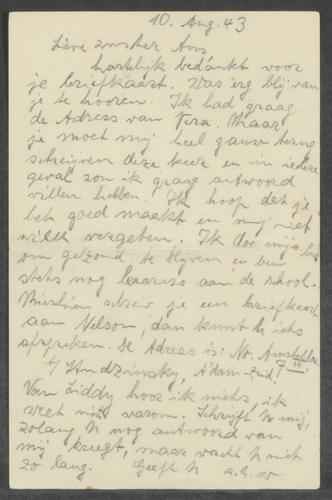 10. Aug. 43
Lieve zuster Ans
hartelijk bedankt voor
je briefkaart. Was erg blij van
je te hooren. Ik had graag
de Adress van Vera. Maar
je moet mij heel gauw terug
schrijven deze keer en in iedere
geval zou ik graag antwoord
willen hebben. Ik hoop dat je
het goed maakt en mij niet
wilt vergeten. Ik doe mijn best
om gezond te blijven en ben
stets nog leraress aan de school.
Misschien schrijv je een briefkaart
aan Nelson, dan kunt U iets
afspreken. De Adress is: No. Amstellaan
7 III
b/ Studzinsky, A'dam-Zuid!
Van Liddy hoor ik niets, ik
weet niet warom. Schrijft U mij,
zolang U nog antwoord van
mij kreegt, maar wacht U niet
zo lang. Geeft U